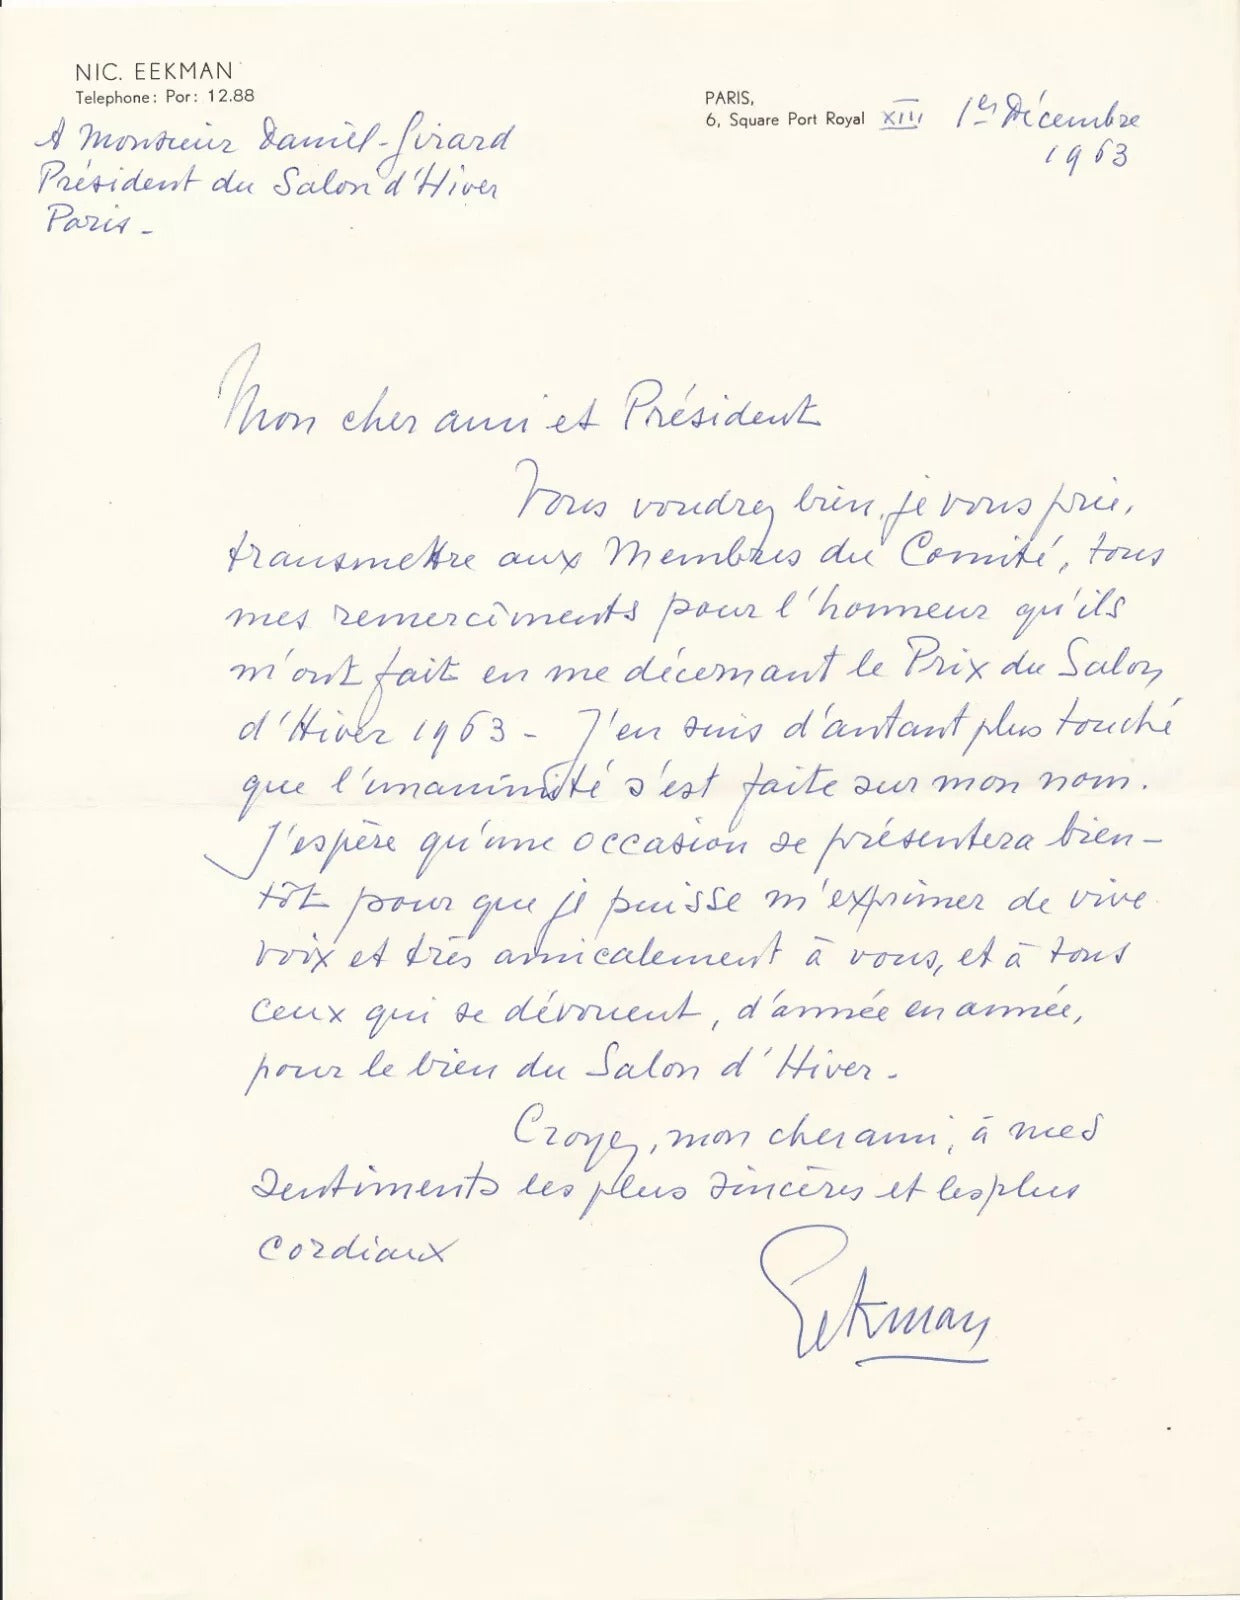 NIC. EEKMAN
Telephone: Por: 12.88
PARIS,
6, Square Port Royal XIII 1er Décembre
1963
A Monsieur Daniel-Girard
Président du Salon d'Hiver
Paris -
Mon cher ami et Président
Vous voudrez bien, je vous prie,
transmettre aux Membres du Comité, tous
mes remercîments pour l'honneur qu'ils
m'ont fait en me décernant le Prix du Salon
d'Hiver 1963 - J'en suis d'autant plus touché
que l'unanimité s'est faite sur mon nom.
J'espère qu'une occasion se présentera bien-
tôt pour que je puisse m'exprimer de vive
voix et très amicalement à vous, et à tous
ceux qui se dévouent, d'année en année,
pour le bien du Salon d'Hiver -
Croyez, mon cher ami, à mes
sentiments les plus sincères et les plus
cordiaux
Eekman